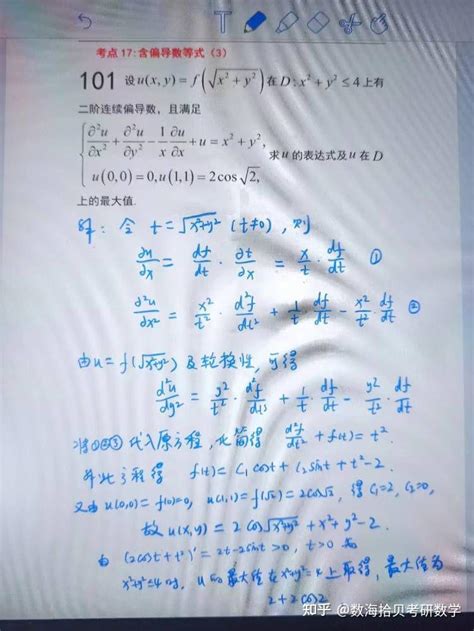 考点 17:含偏导数等式（3）
101 设 u(x,y)=f(√(x²+y²)) 在 D:x²+y²≤4 上有
二阶连续偏导数，且满足
{ ∂²u/∂x² + ∂²u/∂y² - (1/x) ∂u/∂x + u = x²+y², 求 u 的表达式及 u 在 D
u(0,0)=0,u(1,1)=2cos√2,
上的最大值.
解：令 t=√(x²+y²) (t≠0)，则
∂u/∂x = df/dt · ∂t/∂x = x/t · df/dt ①
∂²u/∂x² = x²/t² · d²f/dt² + 1/t · df/dt - x²/t³ · df/dt ②
由 u=f(√(x²+y²)) 及轮换性，可得
d²u/dy² = y²/t² · d²f/dt² + 1/t · df/dt - y²/t³ · df/dt
将①②③代入原方程，化简得 d²f/dt² + f(t)=t².
解此方程得 f(t)=C₁cost+C₂sint+t²-2.
又由 u(0,0)=f(0)=0, u(1,1)=f(√2)=2cos√2, 得 C₁=2, C₂=0,
故 u(x,y)=2cos√(x²+y²)+x²+y²-2.
由 (2cost+t²)'=2t-2sint>0, t>0 知
x²+y²≤4 时, u 的最大值在 x²+y²=4 上取得, 最大值为
2+2cos2
知乎 @数海拾贝考研数学